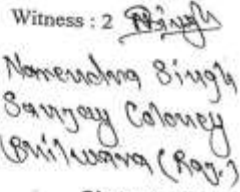 Witness : 2 Singh
Narendra Singh
Sanjay Coloney
Bhilwara (Raj.)